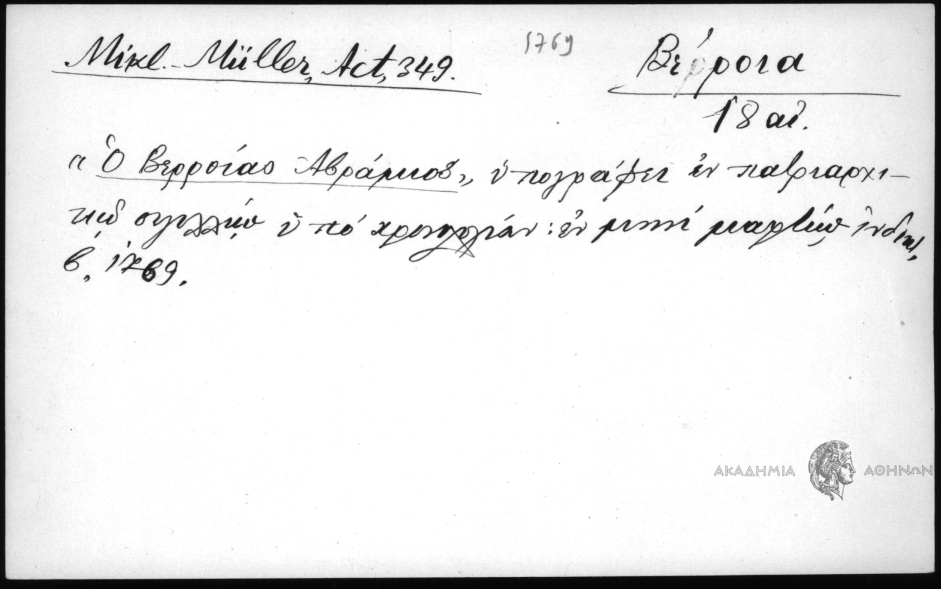 Mikl. Müller, Act, 349.
1769
Βέρροια
18 αἰ.
"Ὁ Βερροίας Αβράμιος", ὑπογράφει ἐν πατριαρχι-
κῷ σιγιλλίῳ ὑπό χρονολογίαν: ἐν μηνί μαρτίῳ ἰνδικτ.
β, 1769.
ΑΚΑΔΗΜΙΑ ΑΘΗΝΩΝ